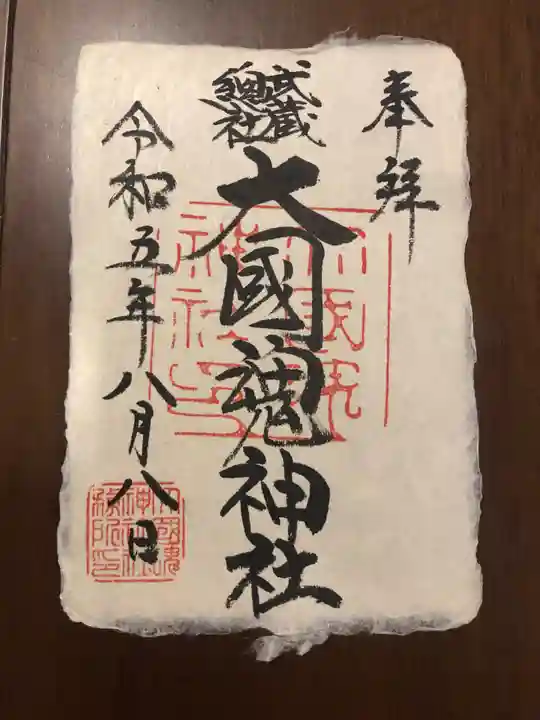 奉拜
武蔵
總社
大國魂神社
令和五年八月八日
大國魂
神社印
大國魂
神社社
務所印